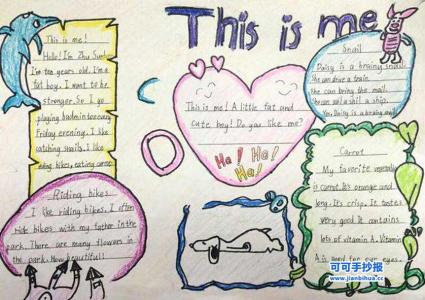 This is me
This is me!
Hello! I'm Zhu Sun!
I'm ten years old. I'm a
fat boy. I want to be
stronger. So I go
playing badminton every
Friday evening. I like
catching snails. I like
riding bikes, eating carrot.
This is me! A little fat and
cute boy! Do you like me?
Ha! Ha!
Ha!
Snail
Daisy is a brainy snail.
She can drive a train.
She can bring the mail.
She can sail a ship.
Yes, Daisy is a brainy snail.
Riding bikes
I like riding bikes. I often
ride bikes with my father in the
park. There are many flowers in
the park. How beautiful!
Carrot
My favorite vegetable
is carrot. It's orange and
long. It's crisp. It tastes
very good. It contains
lots of vitamin A. Vitamin
A is good for our eyes.
可可手抄报
www.jianbihua.cc